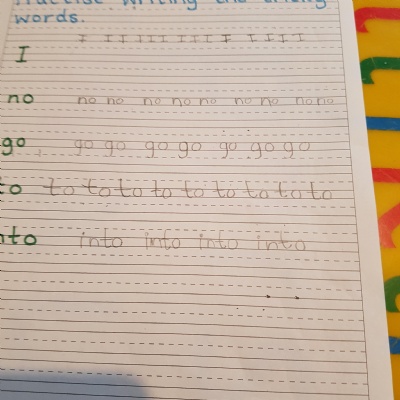 Practise writing the tricky
words.
I I I I I I I I I I I I I I
I
no no no no no no no no no no
go go go go go go go go
to to to to to to to to to to
into into into into into